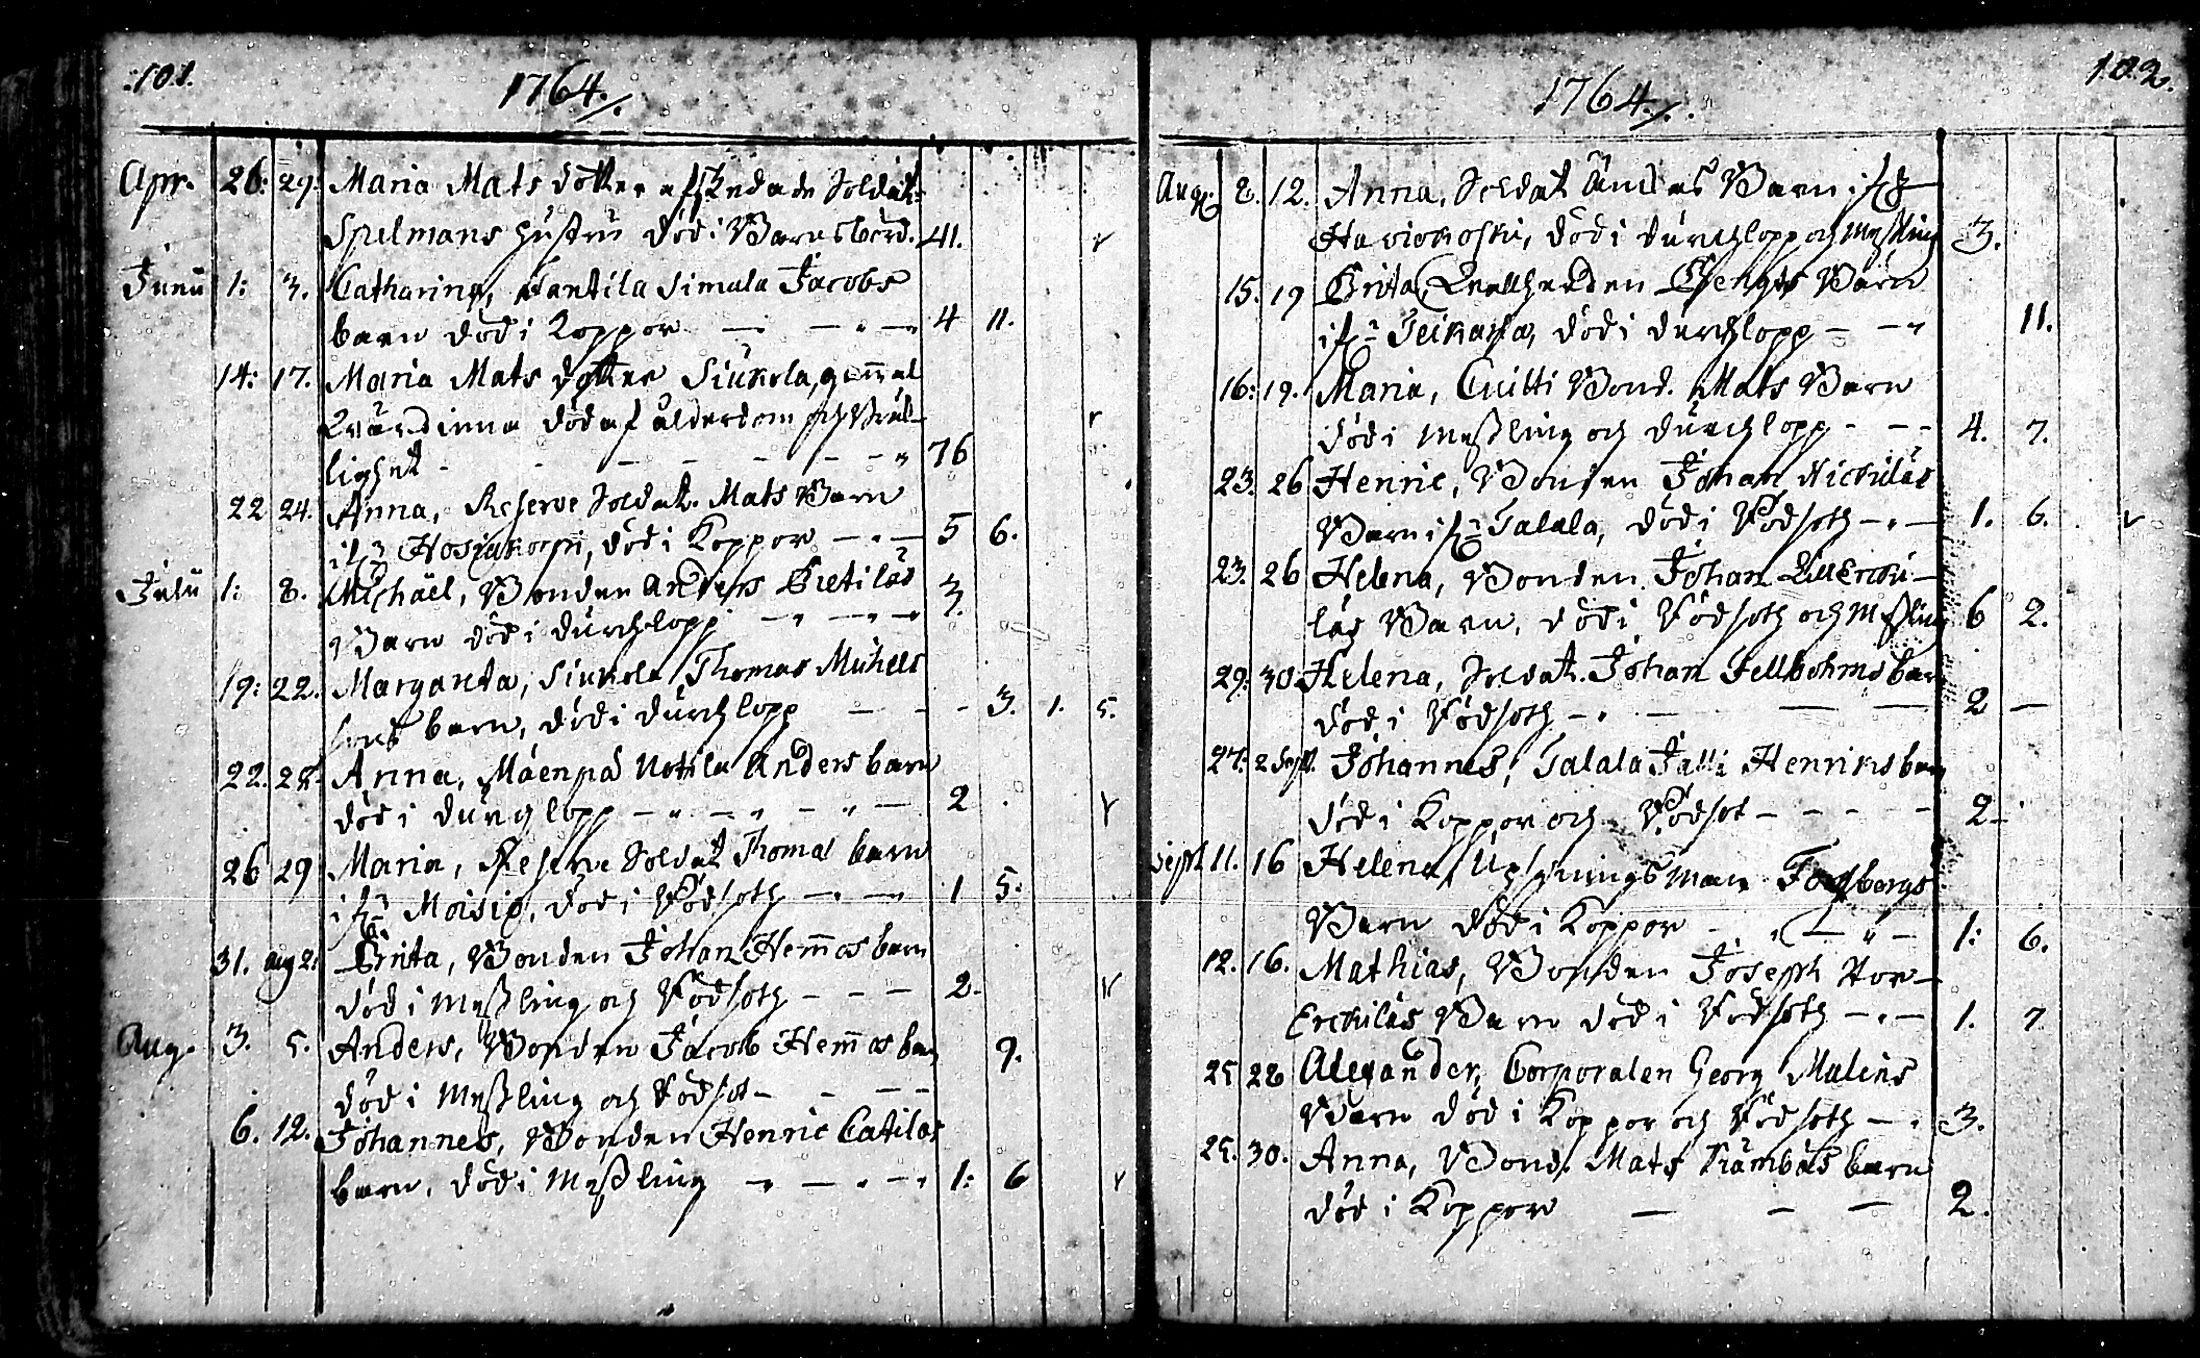 101.
1764./.
Apr. 26: 29. Maria Mats dotter afskedade Soldat
Spelmans hustru död i Barnsbörd. 41.
Junii 1: 3. Catharina, Jantila Simula Jacobs
barn död i Koppor 4 11.
14: 17. Maria Mats dotter Siukola, gam̄al
Qvärdinna död af ålderdom och bräk-
lighet 76
22 24. Anna, Reserve Soldat. Mats Barn
Hosiakorpi, död i Koppor 5 6.
Julii 1: 8. Michäel, Bonden Anders Pietiläs
Barn död i durchlopp 3.
19: 22. Margareta, Siukola Thomas Michels
sons barn, död i durchlopp 3. 1. 5.
22. 28. Anna, Mäenpä Uotila Anders barn
död i durchlopp 2
26 29 Maria, Reserve Soldat Thomas barn
Moisio, död i Rödsoth 1 5.
31. aug 2. Brita, Bonden Johan Hem̄as barn
död i Mäßling och Rödsoth 2.
Aug. 3. 5. Anders, Bonden Jacob Hem̄as barn
död i Mäßling och Rödsot 9.
6. 12. Johannes, Bonden Henric Catilas
barn, död i Mäßling 1: 6
1764./.
102.
Aug. 8. 12. Anna, Soldat Barn
Haviokoski, död i durchlopp och Mäßling 3.
15. 19 Brita, Bengts Barn
död i durchlopp 11.
16: 19. Maria, Cuitti Bond. Mats Barn
död i Mäßling och durchlopp 4. 7.
23. 26 Henric, Bonden Johan Nickiläs
Barn Talala, död i Rödsoth 1. 6.
23. 26 Helena, Bonden Johan LillErcki-
läs Barn, död i Rödsoth och Mäßling 6 2.
29. 30. Helena, Soldat. Johan Fellbohms barn
död i Rödsoth 2
27. 2 Sept. Johannes, Talala Jalli Henriks barn
död i Koppor och Rödsot 2
Sept. 11. 16 Helena, Upsyningsman Forsbergs
Barn död i Koppor 1: 6.
12. 16. Mathias, Bonden Joseph Stor-
Erckiläs Barn död i Rödsoth 1. 7
25 28 Alexander, Corporalen Georg Malins
Barn död i Koppor och Rödsoth 3.
25. 30. Anna, Bond. Mats Kämbäs barn
död i Koppor 2.